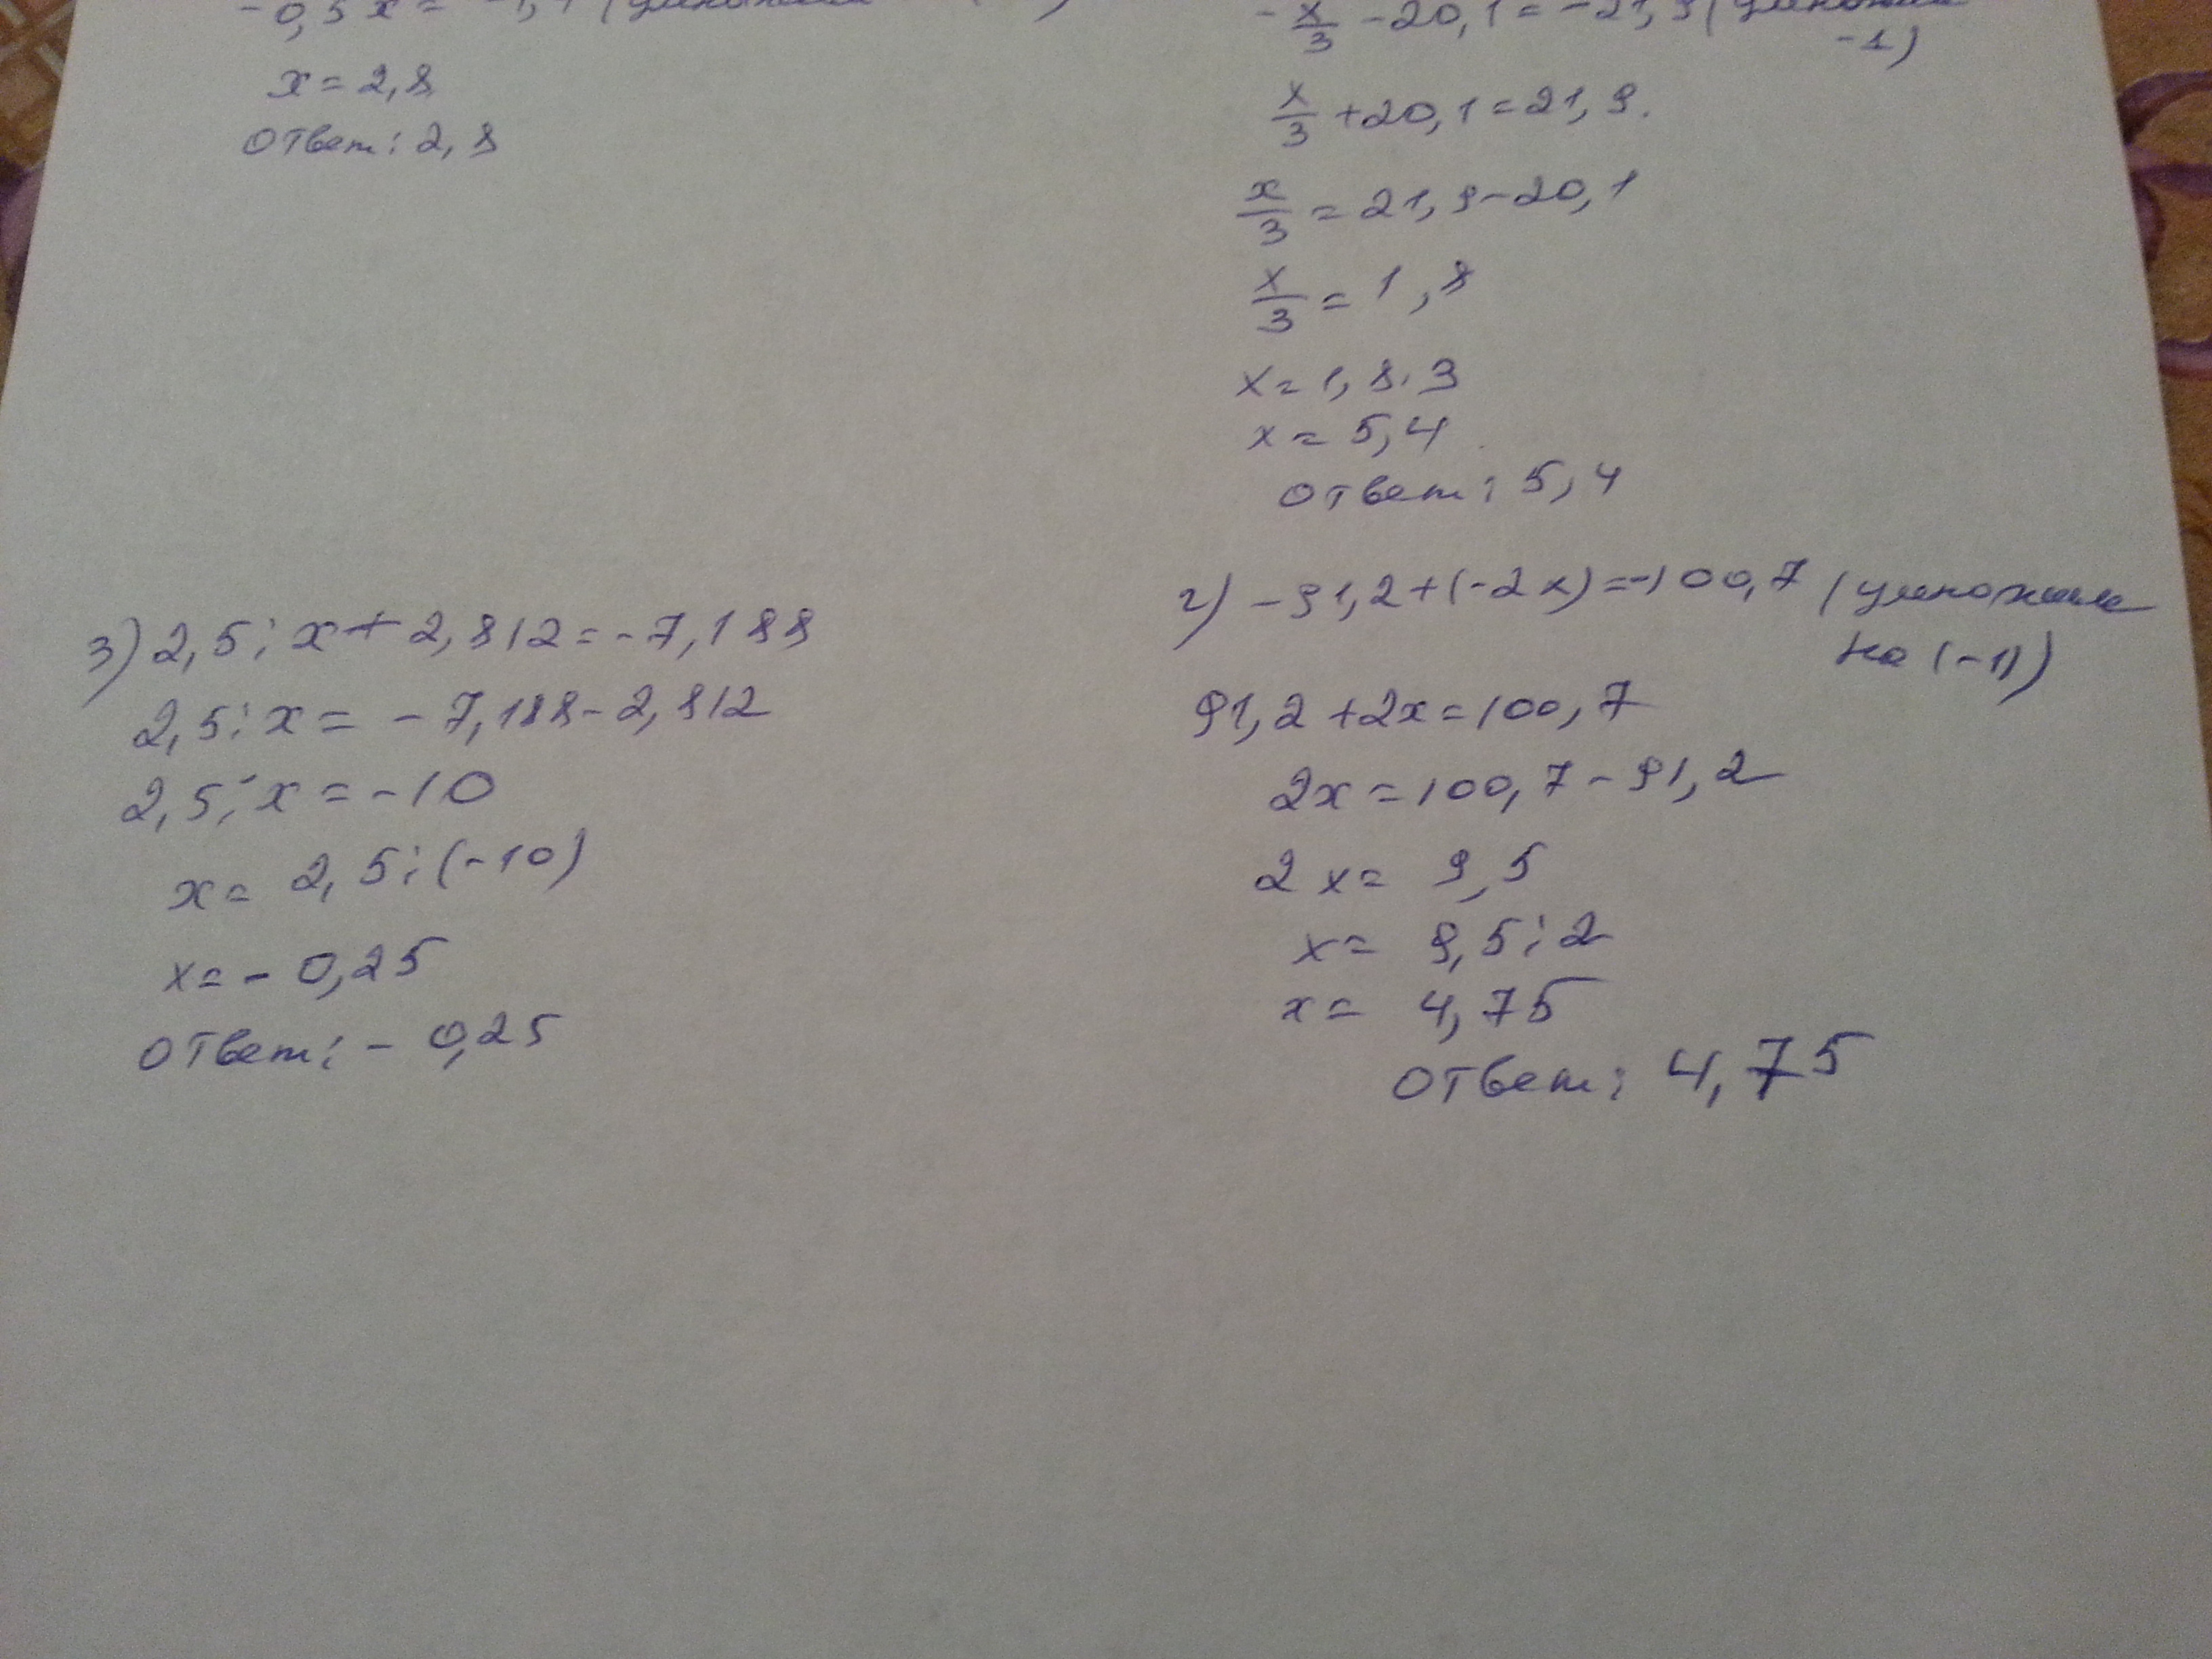 -0,5x = -1,4 (умножим
x = 2,8
Ответ: 2,8
-x/3 - 20,1 = -21,9 (умножим
-1)
x/3 + 20,1 = 21,9.
x/3 = 21,9 - 20,1
x/3 = 1,8
x = 1,8 · 3
x = 5,4
Ответ: 5,4
3) 2,5 : x + 2,812 = -7,188
2,5 : x = -7,188 - 2,812
2,5 : x = -10
x = 2,5 : (-10)
x = -0,25
Ответ: -0,25
г) -91,2 + (-2x) = -100,7 (умножим
на (-1))
91,2 + 2x = 100,7
2x = 100,7 - 91,2
2x = 9,5
x = 9,5 : 2
x = 4,75
Ответ: 4,75